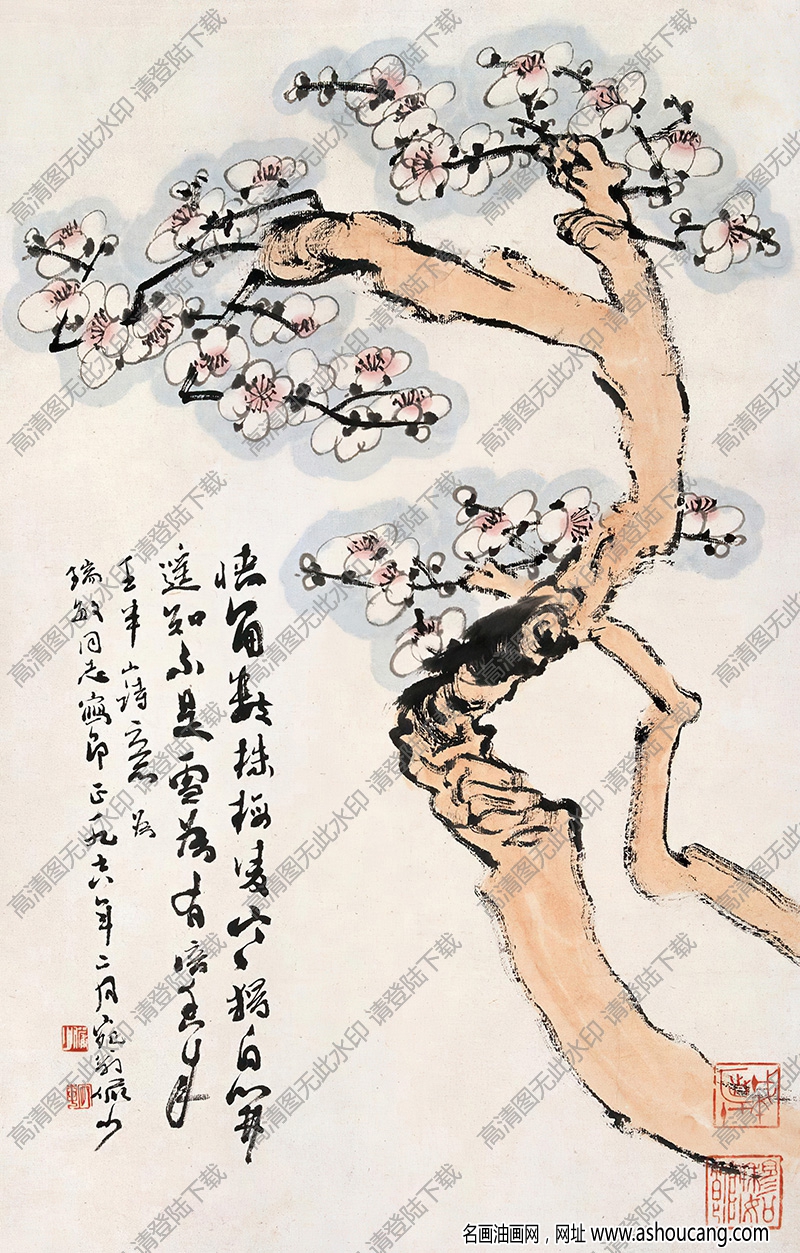 墙角数株梅凌寒獨自開
遥知不是雪為有暗香来
王半山詩意 為
瑞敏同志寫即正 年二月
高清图无此水印 请登陆下载
名画油画网，网址 www.ashoucang.com